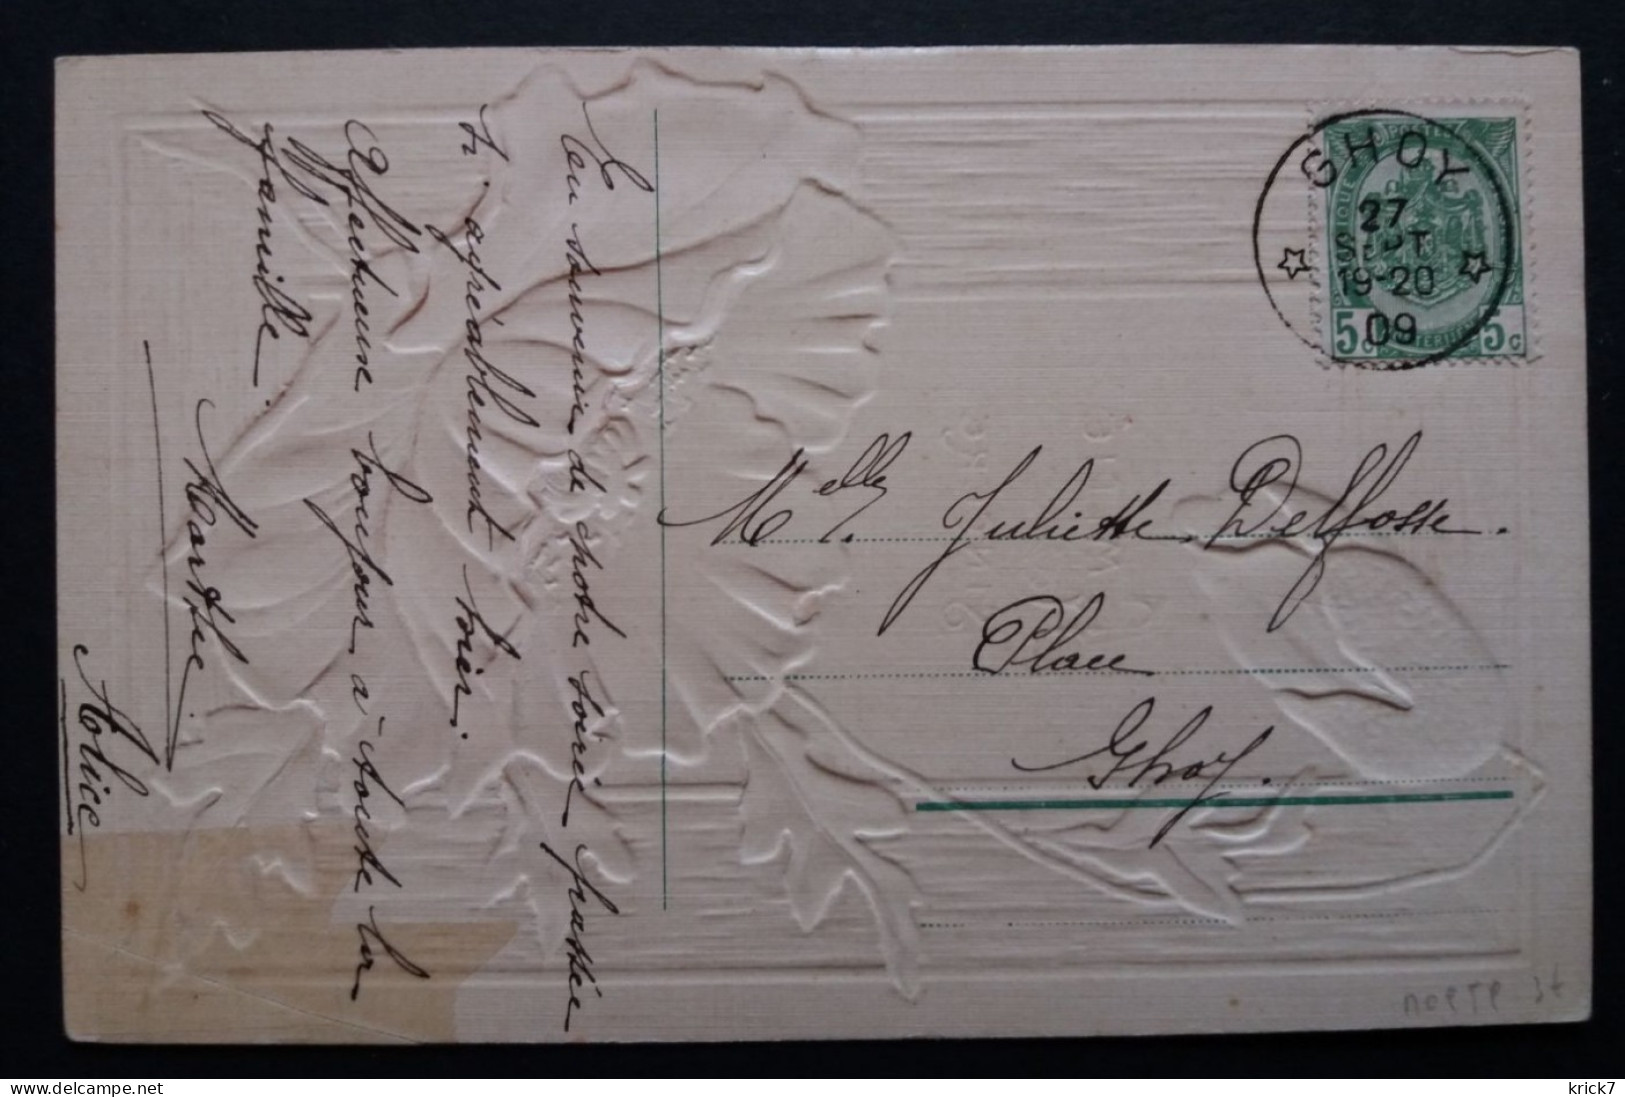 En
au souvenir de notre soirée passée
si agréablement hier.
Affectueuse bonjour à toute la
famille.
Marthe
Alice
GHOY
27
SEPT
19-20
09
5c 5c
Melle. Juliette Delfosse.
Place
Ghoy.
krick7
delcampe.net